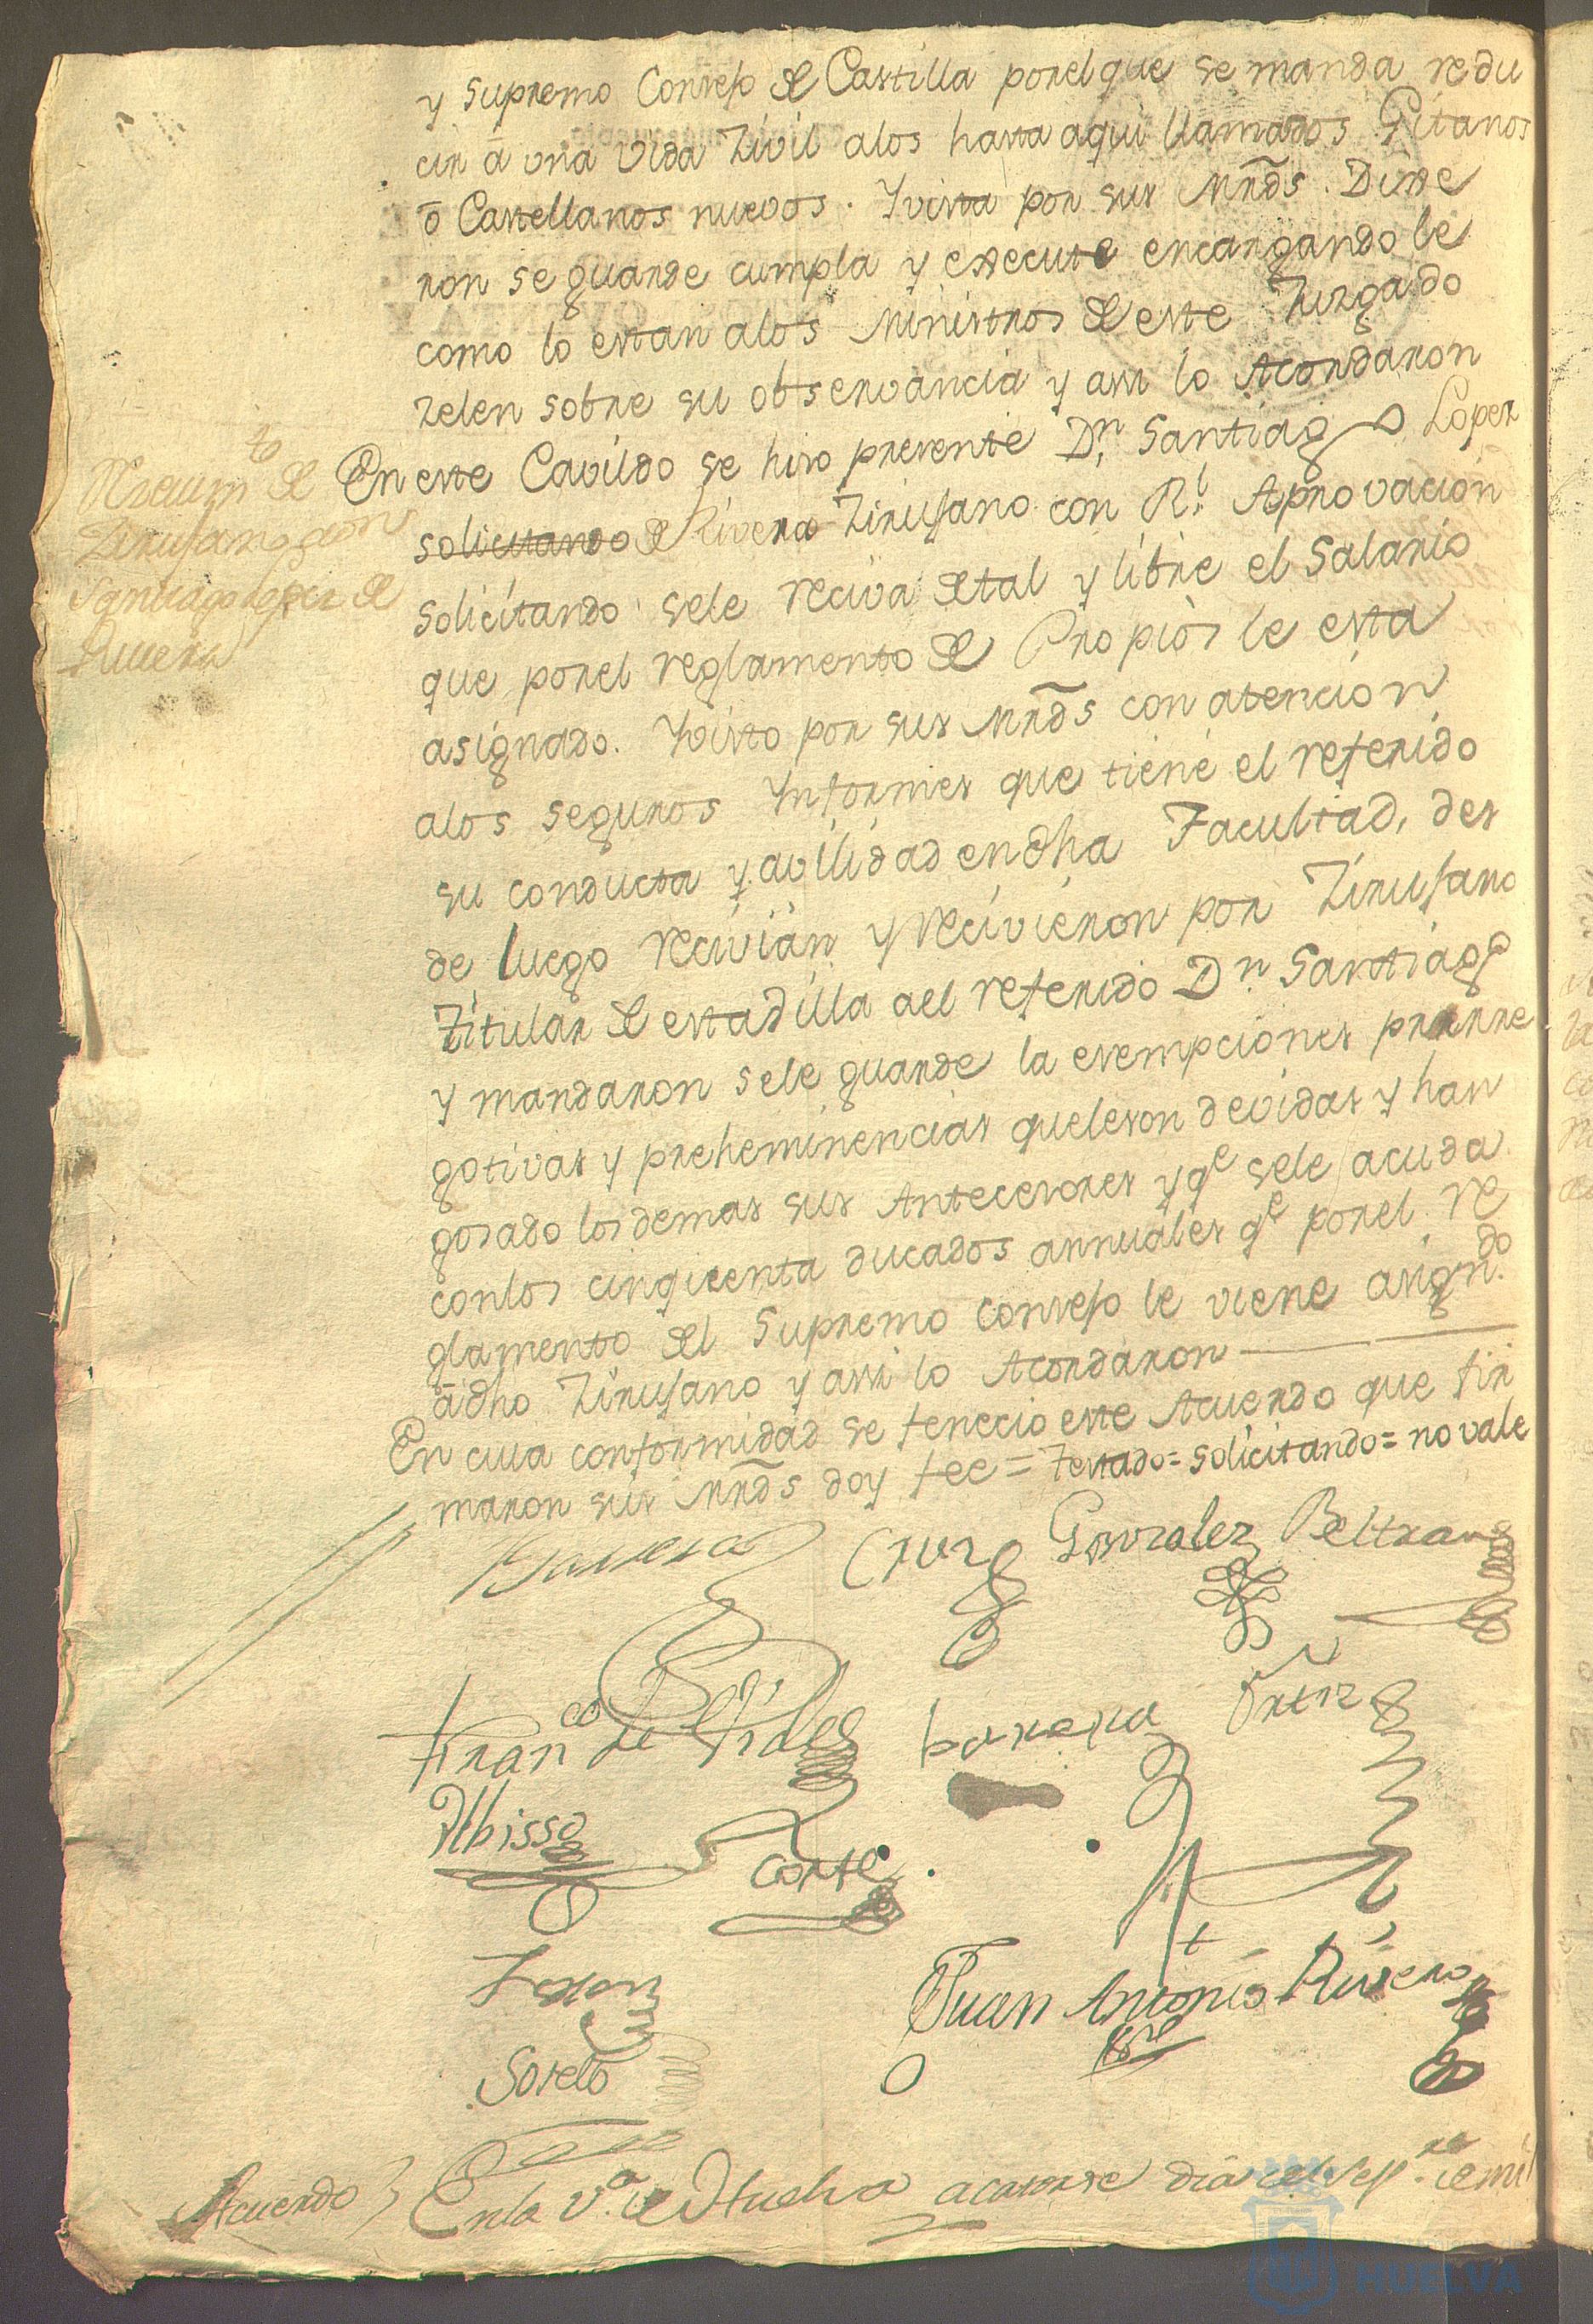 y Supremo Consejo de Castilla porel que se manda redu
cir â una vida Zivil alos hasta aqui llamados Gitanos
ô Castellanos nuevos. Yvista por sus Mrds. Dixe
ron se guarde cumpla y execute encargandole
como lo estan alos Ministros de este Jurgado
zelen sobre su observancia y assi lo Acordaron
Nraum.to de
Zirujano adon
Santiago Lopez de
Rivera
En este Cavildo se hiso presente Dn. Santiago Lopez
solicitando de Rivera Zirujano con Rl. Aprovacion
solicitando sele reciva de tal y libre el Salario
que porel reglamento de Propios le esta
asignado. Yvisto por sus Mrds con atencion
alos seguros Informes que tiene el referido
su conducta y avilidad endha Facultad, des
de luego recivian y recivieron por Zirujano
Titular de estadilla ael referido Dn. Santiago
y mandaron sele guarde la exempciones prerre
gotivas y preheminencias queleson devidas y han
gosado los demas sus Antecesores y qe sele acuda
conlos cinqienta ducados annuales qe porel re
glamento del Supremo Consejo le viene asign.do
â dho Zirujano y assi lo Acordaron
En cuia conformidad se fenecio este Acuerdo que fir
maron sus Mrds doy fee = Testado = solicitando = no vale
Barrera Cruz Gonzalez Beltran
Fran.co de Fides Ortiz
Abisso Corte
Juan Antonio Rivero
Sotelo
Acuerdo En la Va. de Huelva a catorse dia del Sep.re de mil
HUELVA